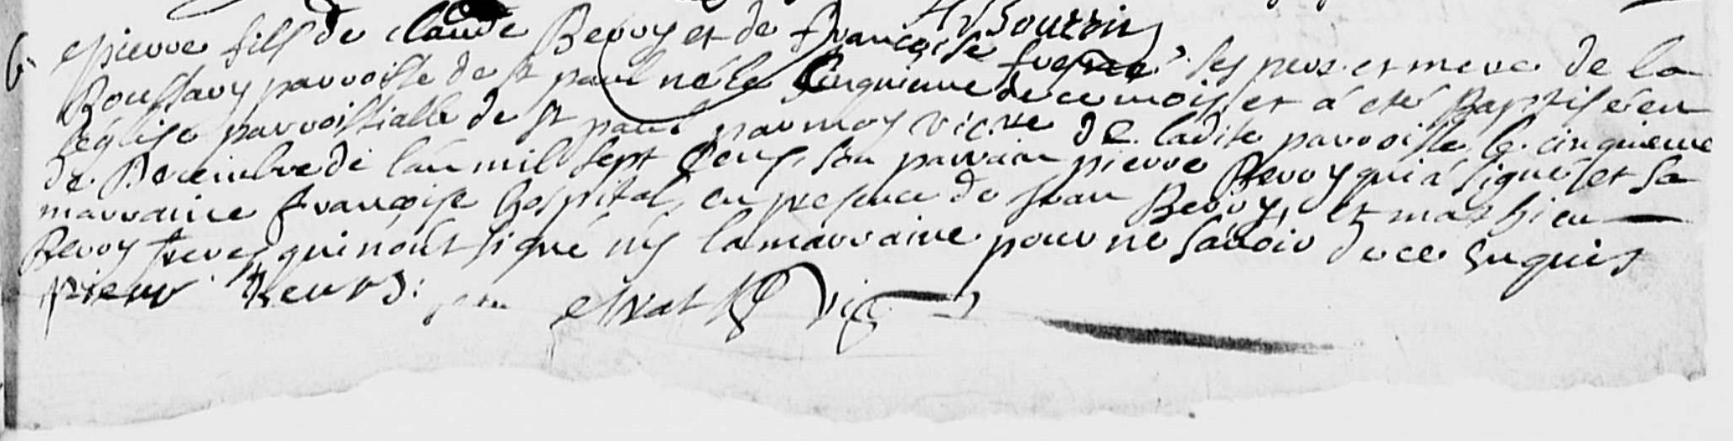 Bourrin
6. epierre fils de claude Bervoy et de françoise ses pere et mere de la
Roussary parroisse de st paul né le cinquieme de ce mois, et a eté Baptisé en
l'église parroissialle de st paul par moy vic.re de ladite parroisse le cinquieme
de Decembre de l'an mil sept cens, son parrain pierre Bervoy qui a signé et sa
marraine françoise hospital, en presence de jean Bervoy, et mathieu
Bervoy freres qui n'ont signé nÿ la marraine pour ne sçavoir de ce enquis
pierre